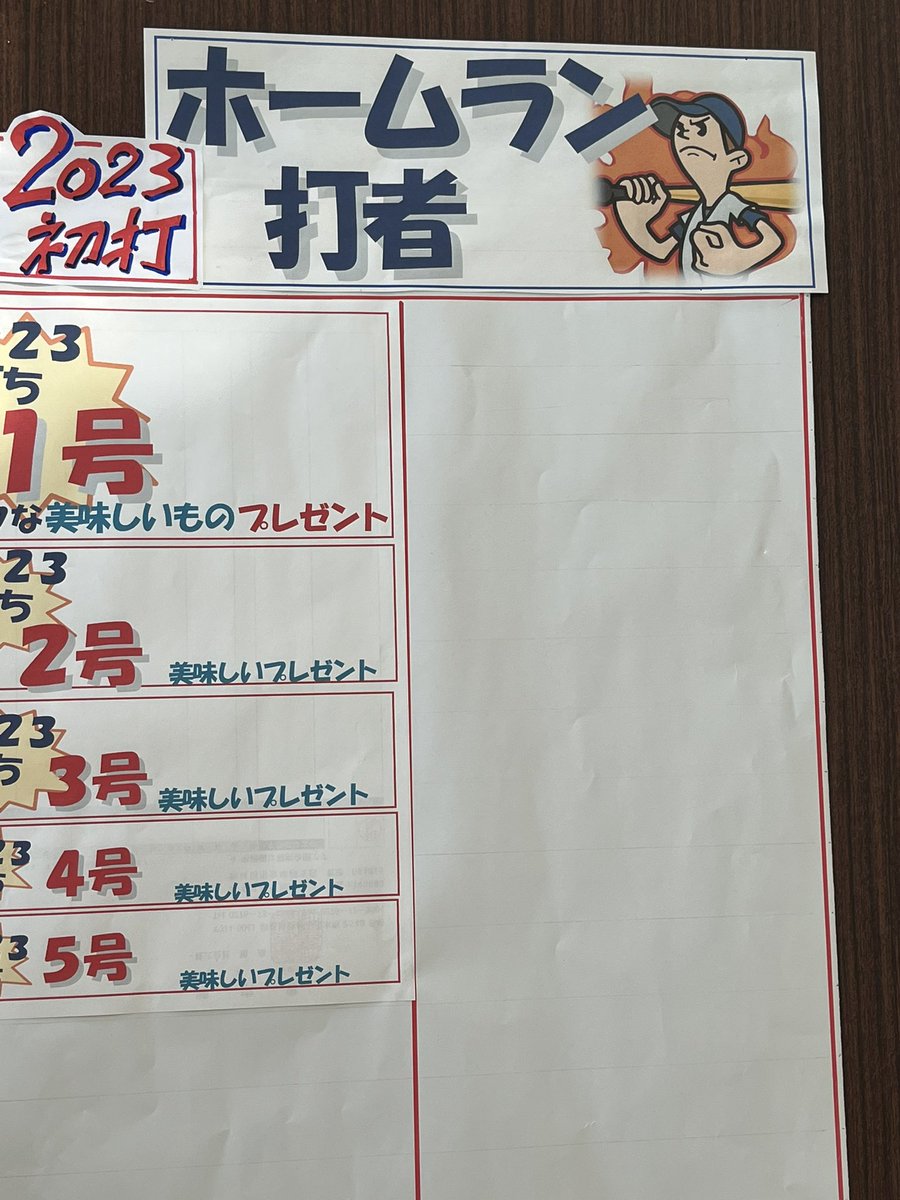 ホームラン
打者
2023
初打
23
ち
1号
な美味しいものプレゼント
23
ち
2号
美味しいプレゼント
23
ち
3号
美味しいプレゼント
23
4号
美味しいプレゼント
3
5号
美味しいプレゼント